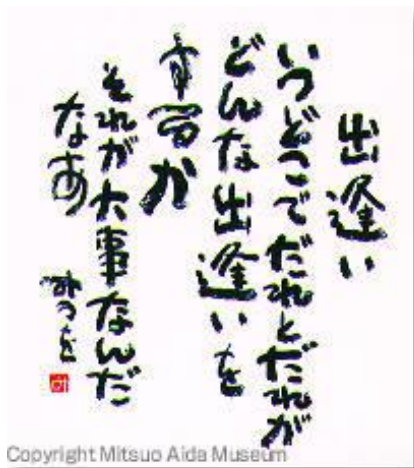 出逢い
いつどこでだれとだれが
どんな出逢いを
するか
それが大事なんだ
なあ
みつを
Copyright Mitsuo Aida Museum